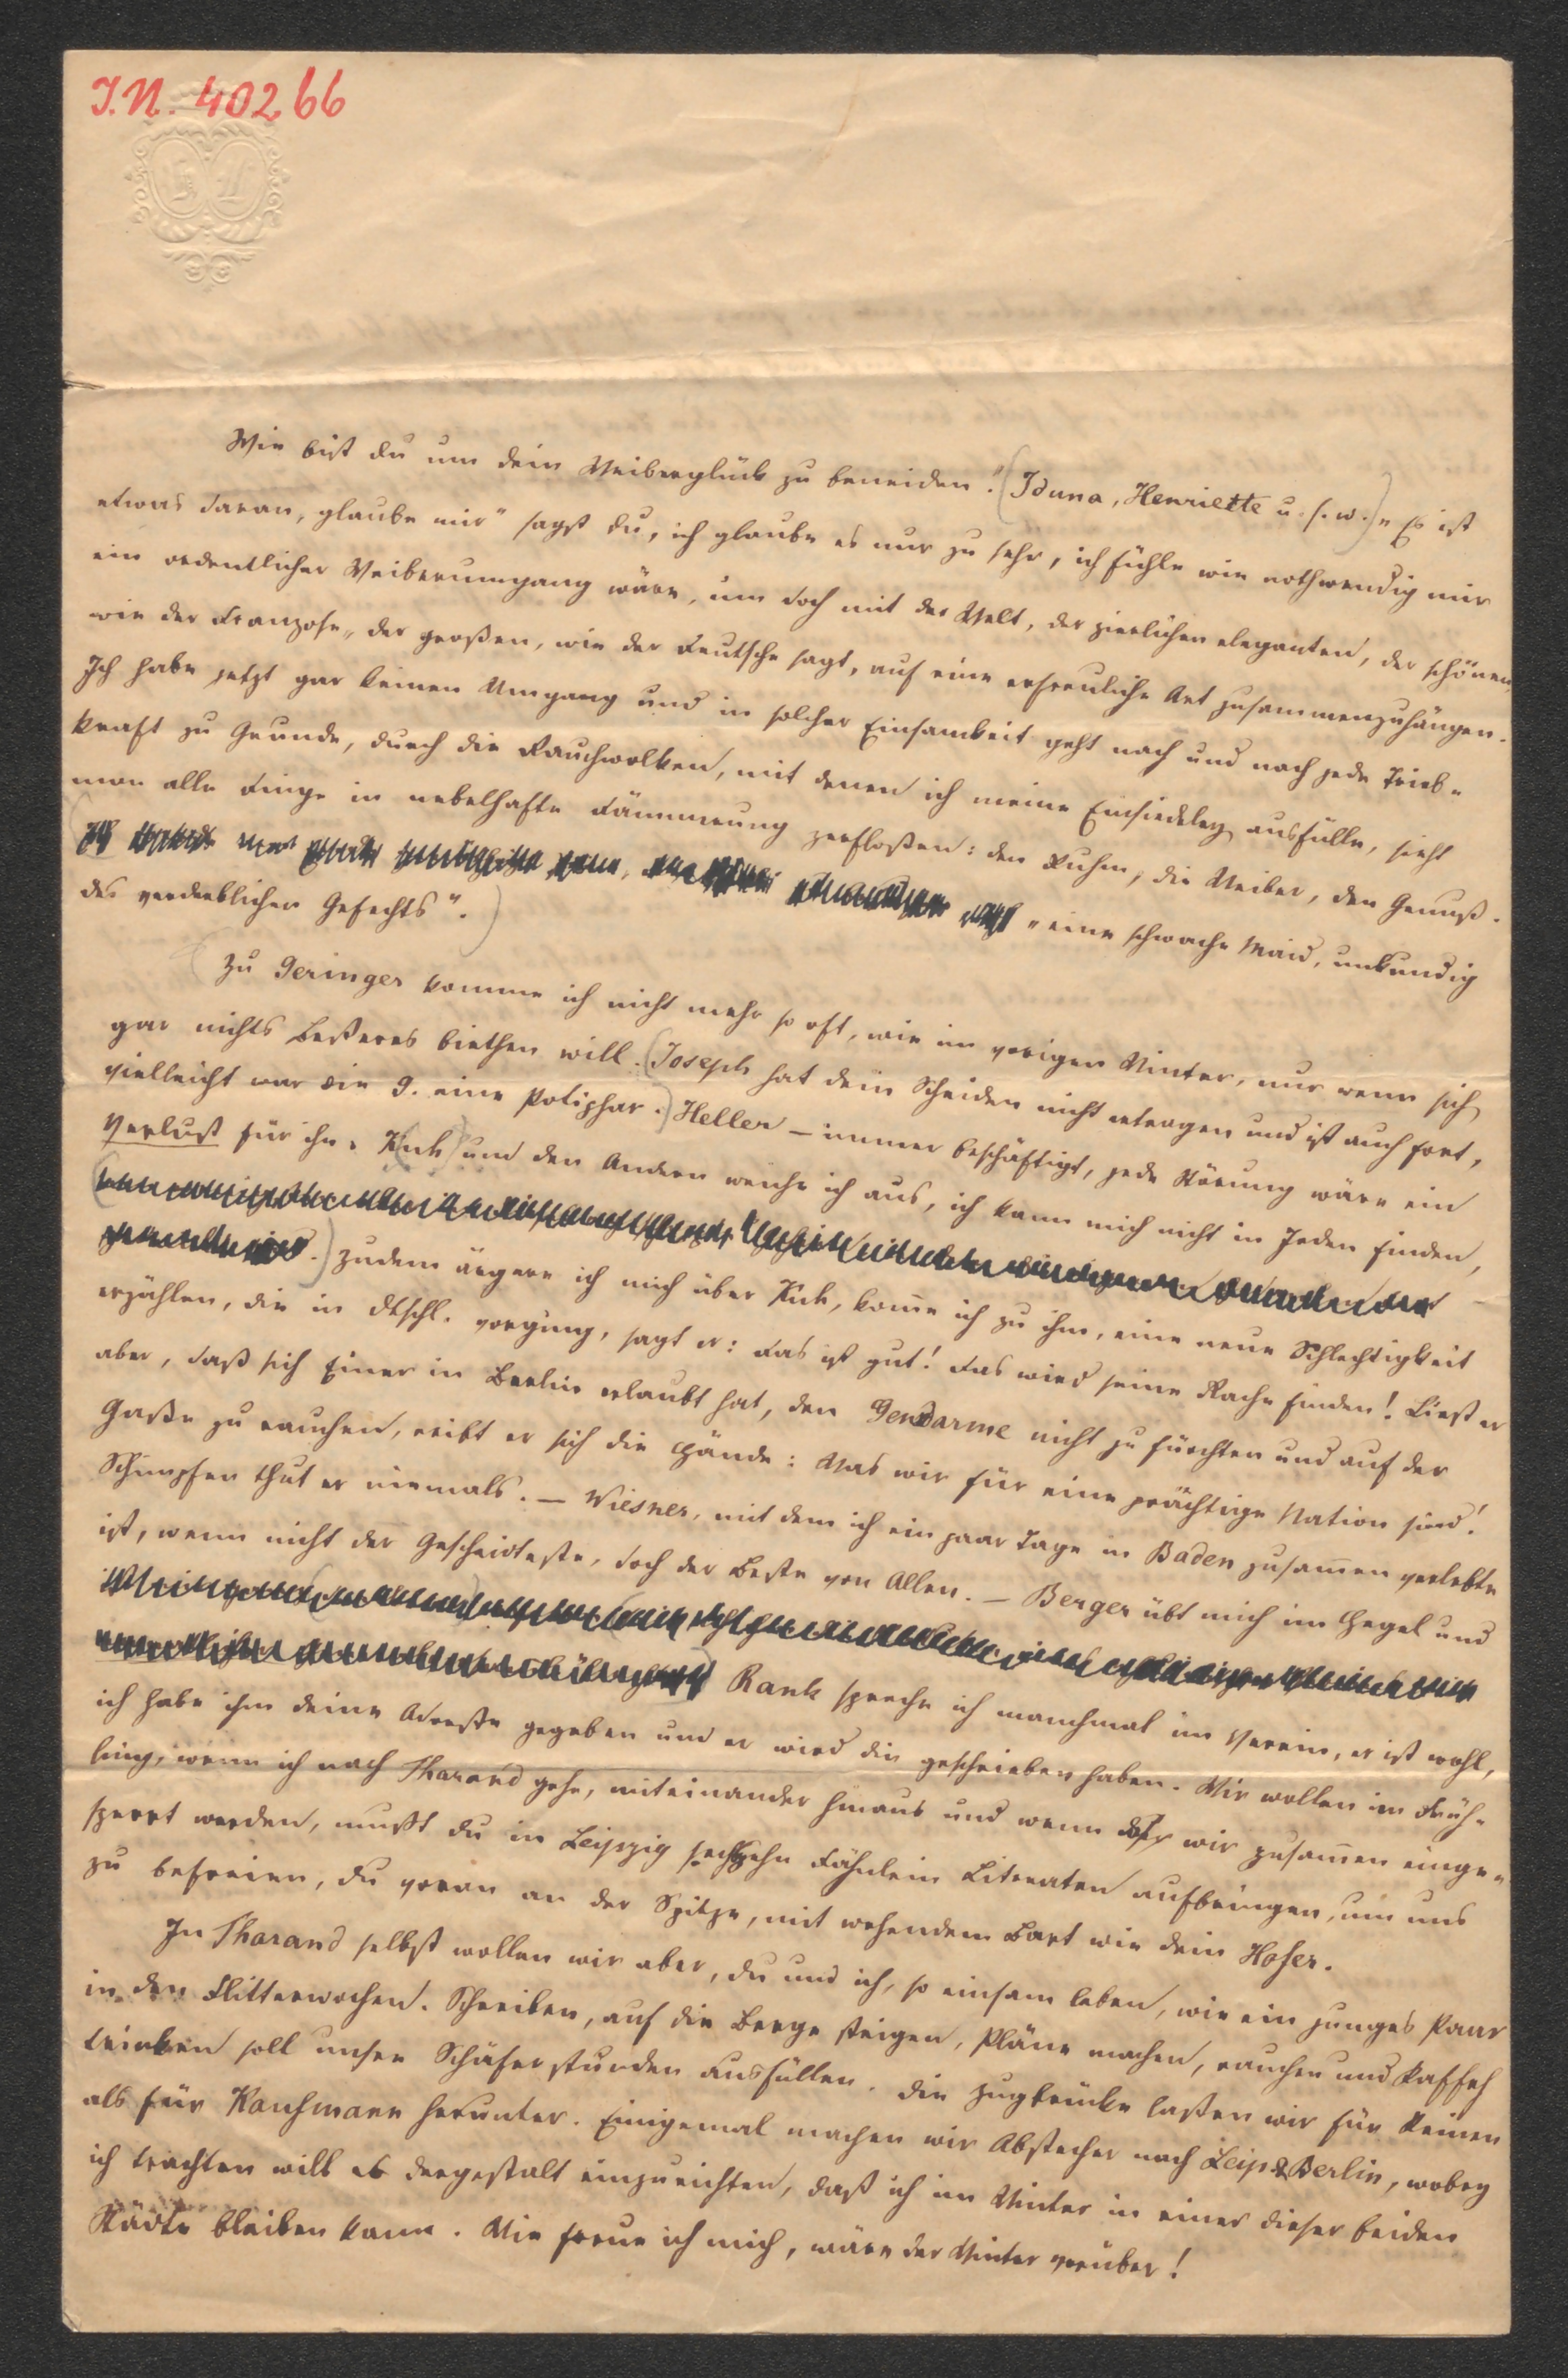 I.N. 40266
Wie bist du um dein Weiberglück zu beneiden! (Iduna, Henriette u. s. w.) „Es ist
etwas daran, glaube mir“ sagst du, ich glaube es nur zu sehr, ich fühle wie nothwendig mir
ein ordentlicher Weiberumgang wäre, um doch mit der Welt, der zierlichen eleganten, der schönen,
wie der Franzose, der großen, wie der Deutsche sagt, auf eine erfreuliche Art zusammenzuhängen.
Ich habe jetzt gar keinen Umgang und in solcher Einsamkeit geht nach und nach jede Trieb-
kraft zu Grunde, durch die Rauchwolken, mit denen ich meine Einsiedeley ausfülle, sieht
man alle Dinge in nebelhafte Dämmerung zerfloßen: den Ruhm, die Weiber, den Genuß.
„eine schwache Maid, unkundig
des verderblichen Gefechts“.)
Zu Geringer komme ich nicht mehr so oft, wie im vorigen Winter, nur wenn sich
gar nichts Beßeres biethen will. (Joseph hat dein Scheiden nicht ertragen und ist auch fort,
vielleicht war die G. eine Potiphar.) Heller – immer beschäftigt, jede Störung wäre ein
Verlust für ihn. Kuh und den Andern weiche ich aus, ich kann mich nicht in Jeden finden,
zudem ärgere ich mich über Kuh, kom̄e ich zu ihm, eine neue Schlechtigkeit
erzählen, die in Dtschl. vorging, sagt er: das ist gut! das wird seine Rache finden! Liest er
aber, daß sich Einer in Berlin erlaubt hat, den Gendarme nicht zu fürchten und auf der
Gaße zu rauchen, reibt er sich die Hände: Was wir für eine prächtige Nation sind!
Schimpfen thut er niemals. – Wiesner, mit dem ich ein paar Tage in Baden zusam̄en verlebte
ist, wenn nicht der Gescheidteste, doch der Beste von Allen. – Berger übt mich im Hegel und
Rank spreche ich manchmal im Verein, er ist wohl,
ich habe ihm deine Adreße gegeben und er wird dir geschrieben haben. Wir wollen im Früh-
ling, wenn ich nach Tharand gehe, miteinander hinaus und wenn wir zusam̄en einge-
sperrt werden, mußt du in Leipzig sechzehn Fähnlein Literaten aufbringen, um uns
zu befreien, du voran an der Spitze, mit wehendem Bart wie dein Hofer.
In Tharand selbst wollen wir aber, du und ich, so einsam leben, wie ein junges Paar
in den Flitterwochen. Schreiben, auf die Berge steigen, Pläne machen, rauchen und Kaffeh
trinken soll unsere Schäferstunden ausfüllen. die Zugbrücke laßen wir für Keinen
als für Kaufmann herunter. Einigemal machen wir Abstecher nach Leip & Berlin, wobey
ich trachten will es dergestalt einzurichten, daß ich im Winter in einer dieser beiden
Städte bleiben kann. Wie freue ich mich, wäre der Winter vorüber!